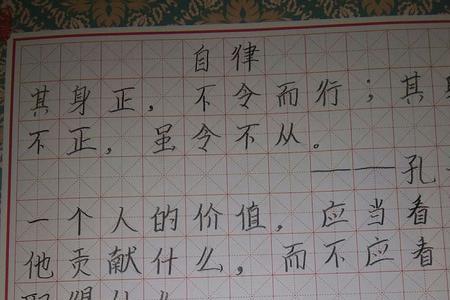 自律
其身正，不令而行；其
不正，虽令不从。
——孔
一个人的价值，应当看
他贡献什么，而不应看